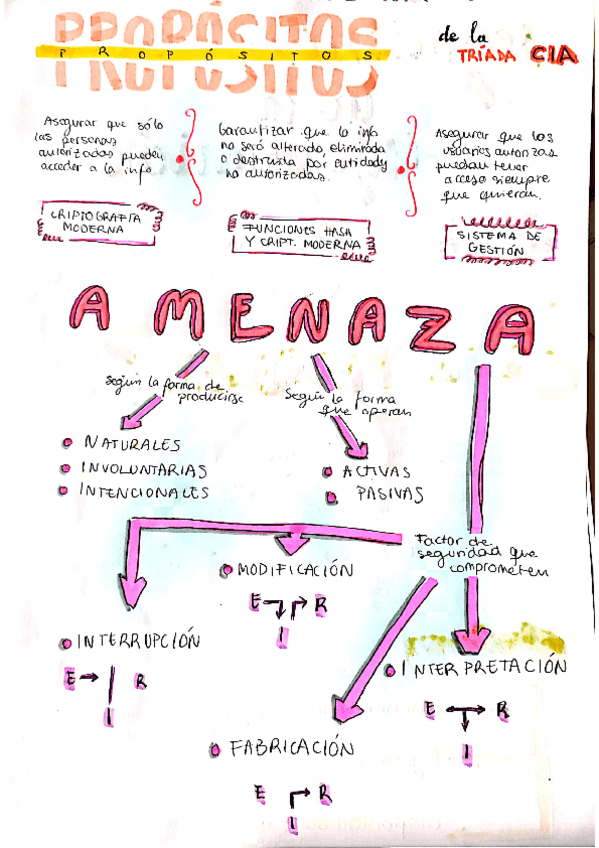 PROPÓSITOS
PROPÓSITOS
de la
TRÍADA CIA
Asegurar que sólo
las personas
autorizadas puedan
acceder a la info.
Garantizar que la info
no será alterada, eliminada
o destruida por entidades
no autorizadas.
Asegurar que los
usuarios autorizas
puedan tener
acceso siempre
que quieran.
CRIPTOGRAFÍA
MODERNA
FUNCIONES HASH
Y CRIPT. MODERNA
SISTEMA DE
GESTIÓN
AMENAZA
Según la forma de
producirse
Según la forma
que operan
NATURALES
INVOLUNTARIAS
INTENCIONALES
ACTIVAS
PASIVAS
Factor de
seguridad que
comprometen
MODIFICACIÓN
E R
I
INTERRUPCIÓN
E R
I
INTERPRETACIÓN
E R
I
FABRICACIÓN
E R
I